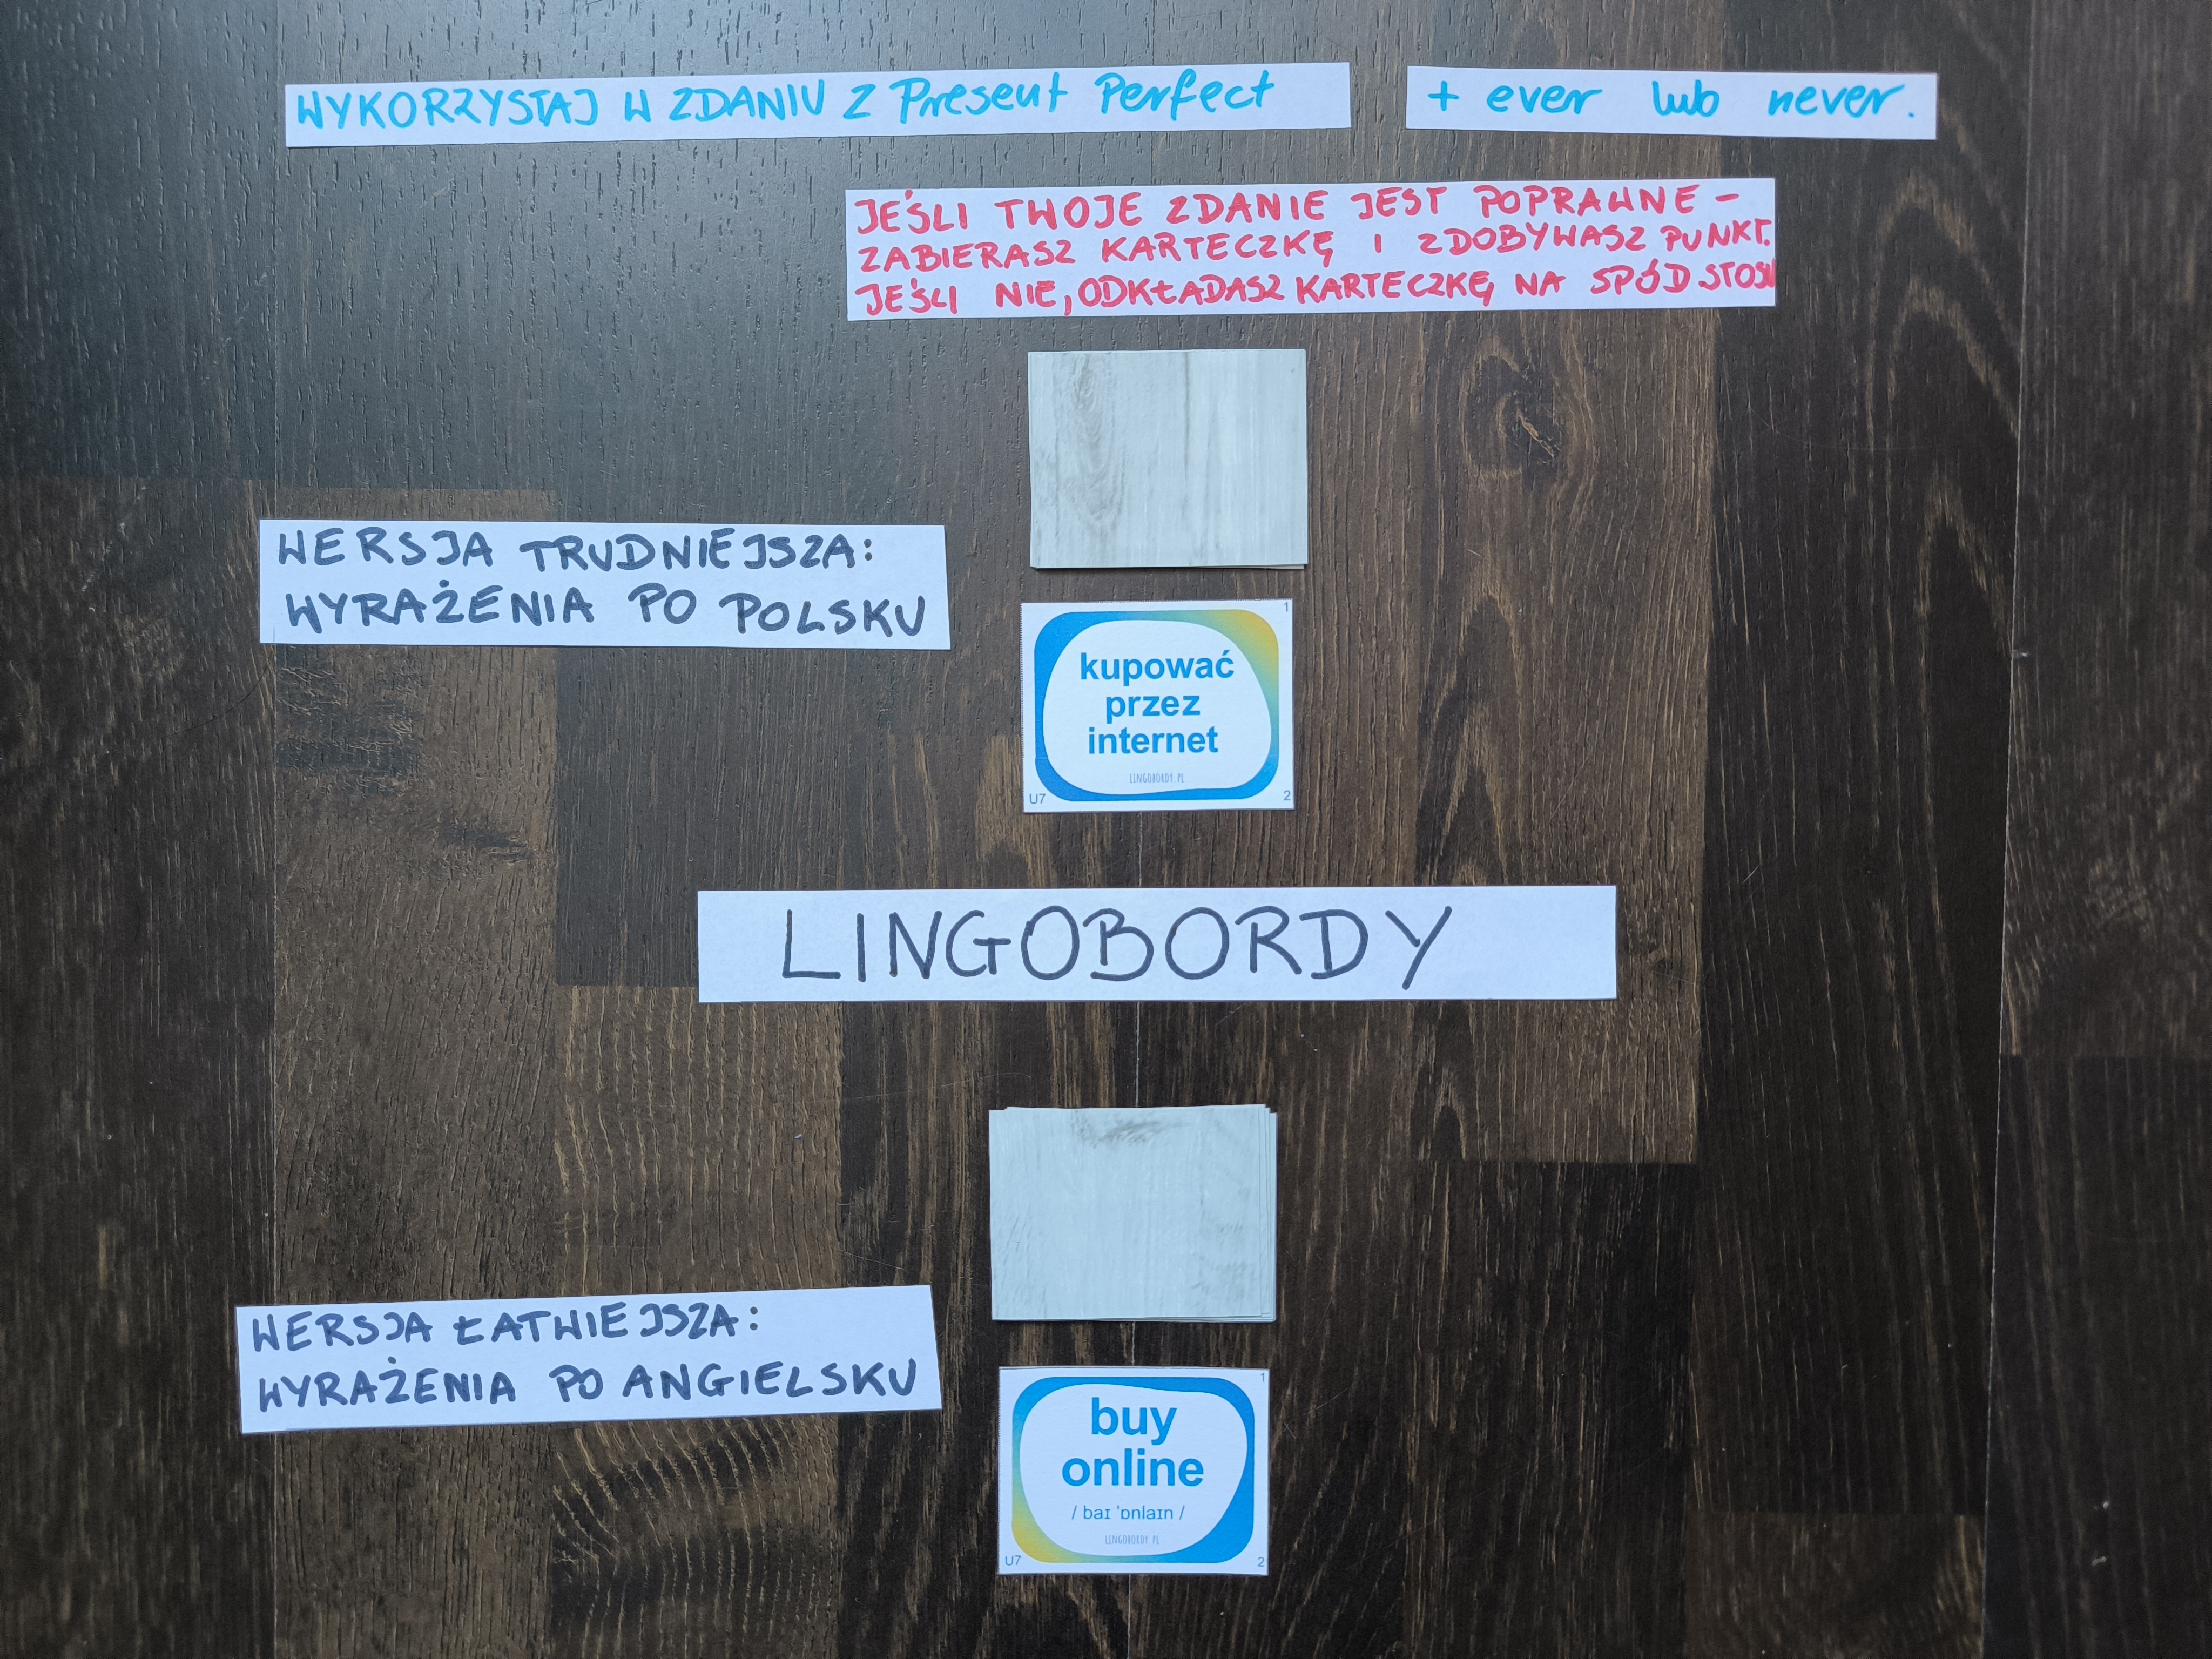 WYKORZYSTAJ W ZDANIU Z Present Perfect
+ ever lub never.
JEŚLI TWOJE ZDANIE JEST POPRAWNE -
ZABIERASZ KARTECZKĘ I ZDOBYWASZ PUNKT.
JEŚLI NIE, ODKŁADASZ KARTECZKĘ NA SPÓD STOSU
WERSJA TRUDNIEJSZA:
WYRAŻENIA PO POLSKU
1
kupować
przez
internet
LINGOBORDY.PL
U7
2
LINGOBORDY
WERSJA ŁATWIEJSZA:
WYRAŻENIA PO ANGIELSKU
1
buy
online
/ baɪ ˈɒnlaɪn /
LINGOBORDY.PL
U7
2